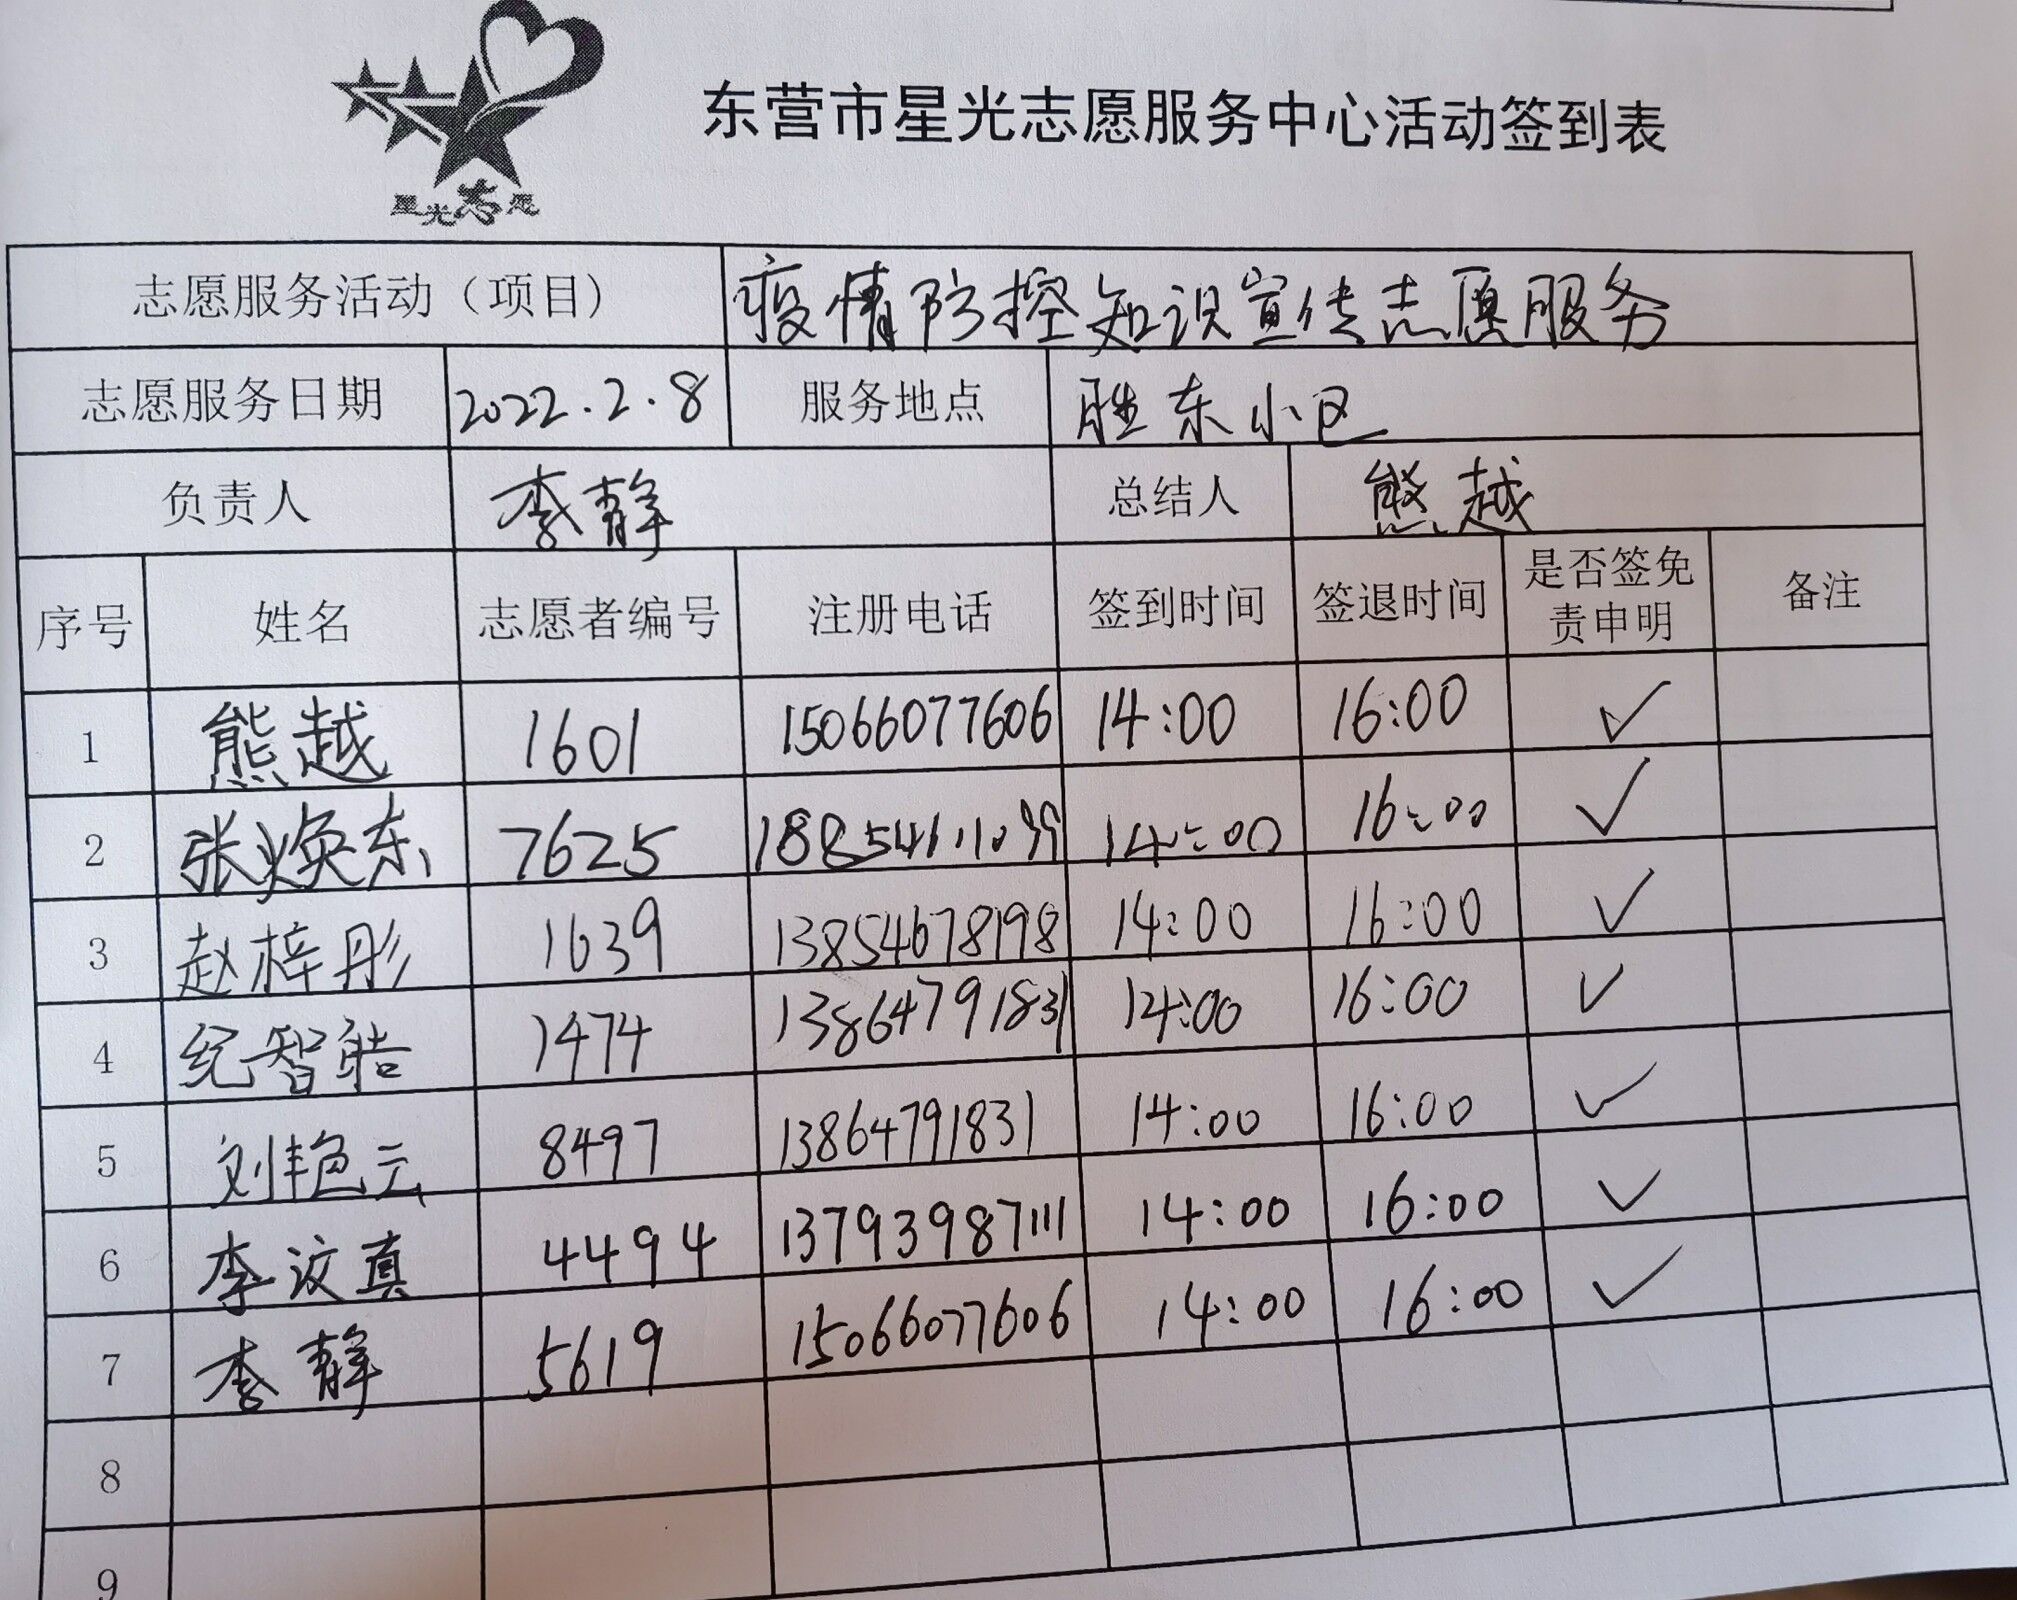 星光志愿
东营市星光志愿服务中心活动签到表
志愿服务活动（项目） 疫情防控知识宣传志愿服务
志愿服务日期 2022.2.8 服务地点 胜东小区
负责人 李静 总结人 熊越
序号 姓名 志愿者编号 注册电话 签到时间 签退时间 是否签免责申明 备注
1 熊越 1601 15066077606 14:00 16:00 ✓
2 张焕东 7625 14:00 16:00 ✓
3 赵梓彤 1639 13854678198 14:00 16:00 ✓
4 纪智皓 1474 13864791831 14:00 16:00 ✓
5 刘艳云 8497 13864791831 14:00 16:00 ✓
6 李汶真 4494 13793987111 14:00 16:00 ✓
7 李静 5619 15066077606 14:00 16:00 ✓
8
9